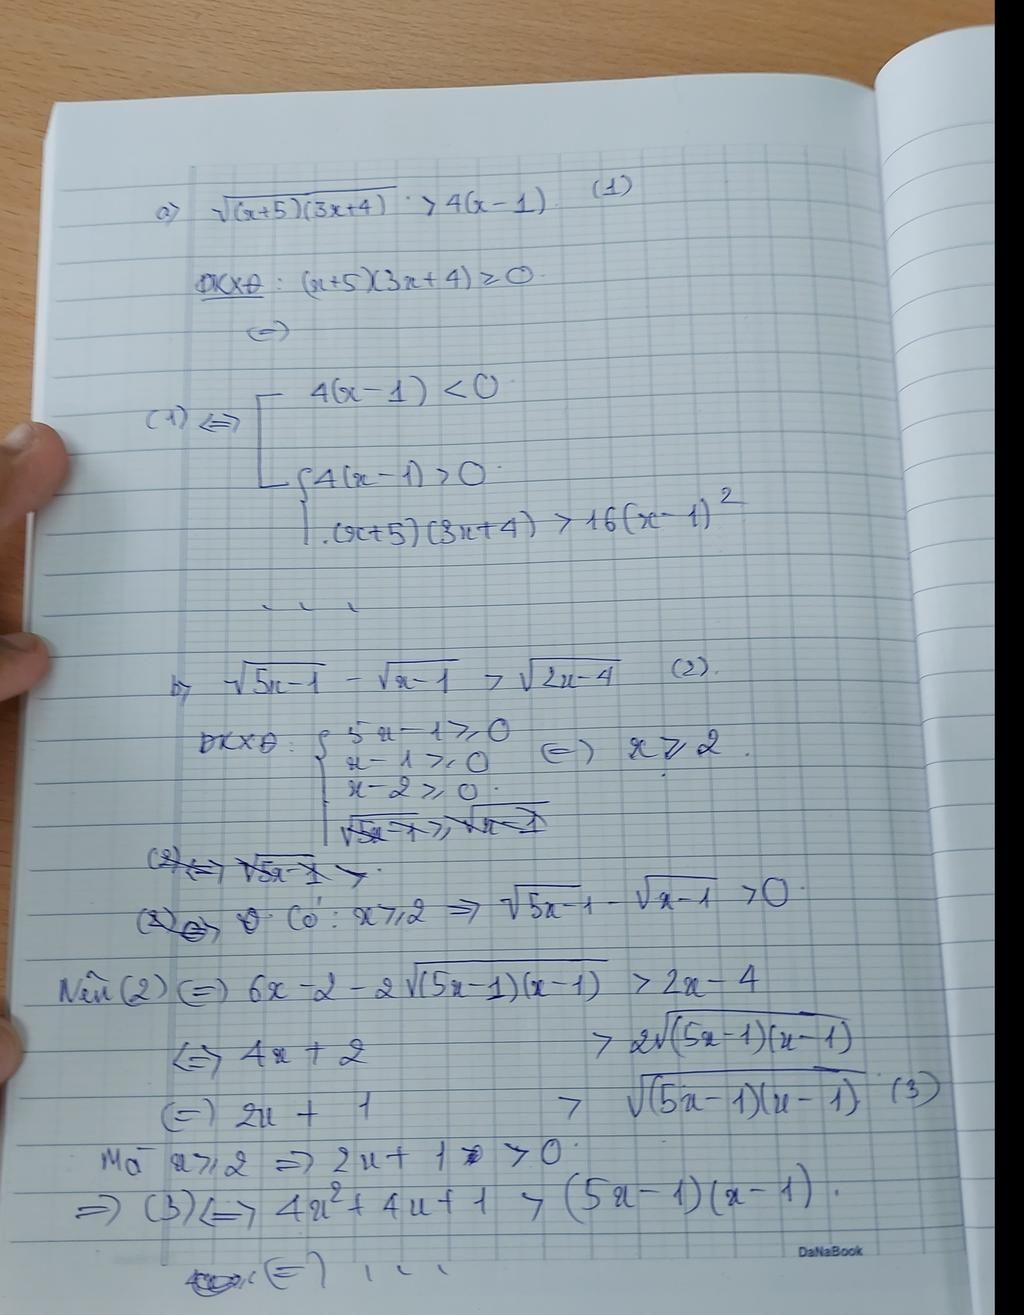 a) √(x+5)(3x+4) > 4(x-1) (1)
ĐKXĐ: (x+5)(3x+4) ≥ 0
⇔
4(x-1) < 0
(1) ⇔
4(x-1) > 0
(x+5)(3x+4) > 16(x-1)²
. . .
b) √5x-1 - √x-1 > √2x-4 (2).
ĐKXĐ: 5x-1 ≥ 0
x-1 ≥ 0 ⇔ x ≥ 2.
x-2 ≥ 0
√5x-1 ≥ √x-1
(2) ⇔ √5x-1 >
(2) ⇔ Có: x ≥ 2 ⇒ √5x-1 - √x-1 > 0
Nên (2) ⇔ 6x-2-2√(5x-1)(x-1) > 2x-4
⇔ 4x+2 > 2√(5x-1)(x-1)
⇔ 2x+1 > √(5x-1)(x-1) (3)
Mà x ≥ 2 ⇒ 2x+1 > 0
⇒ (3) ⇔ 4x²+4x+1 > (5x-1)(x-1).
DaNaBook
⇔ . . .